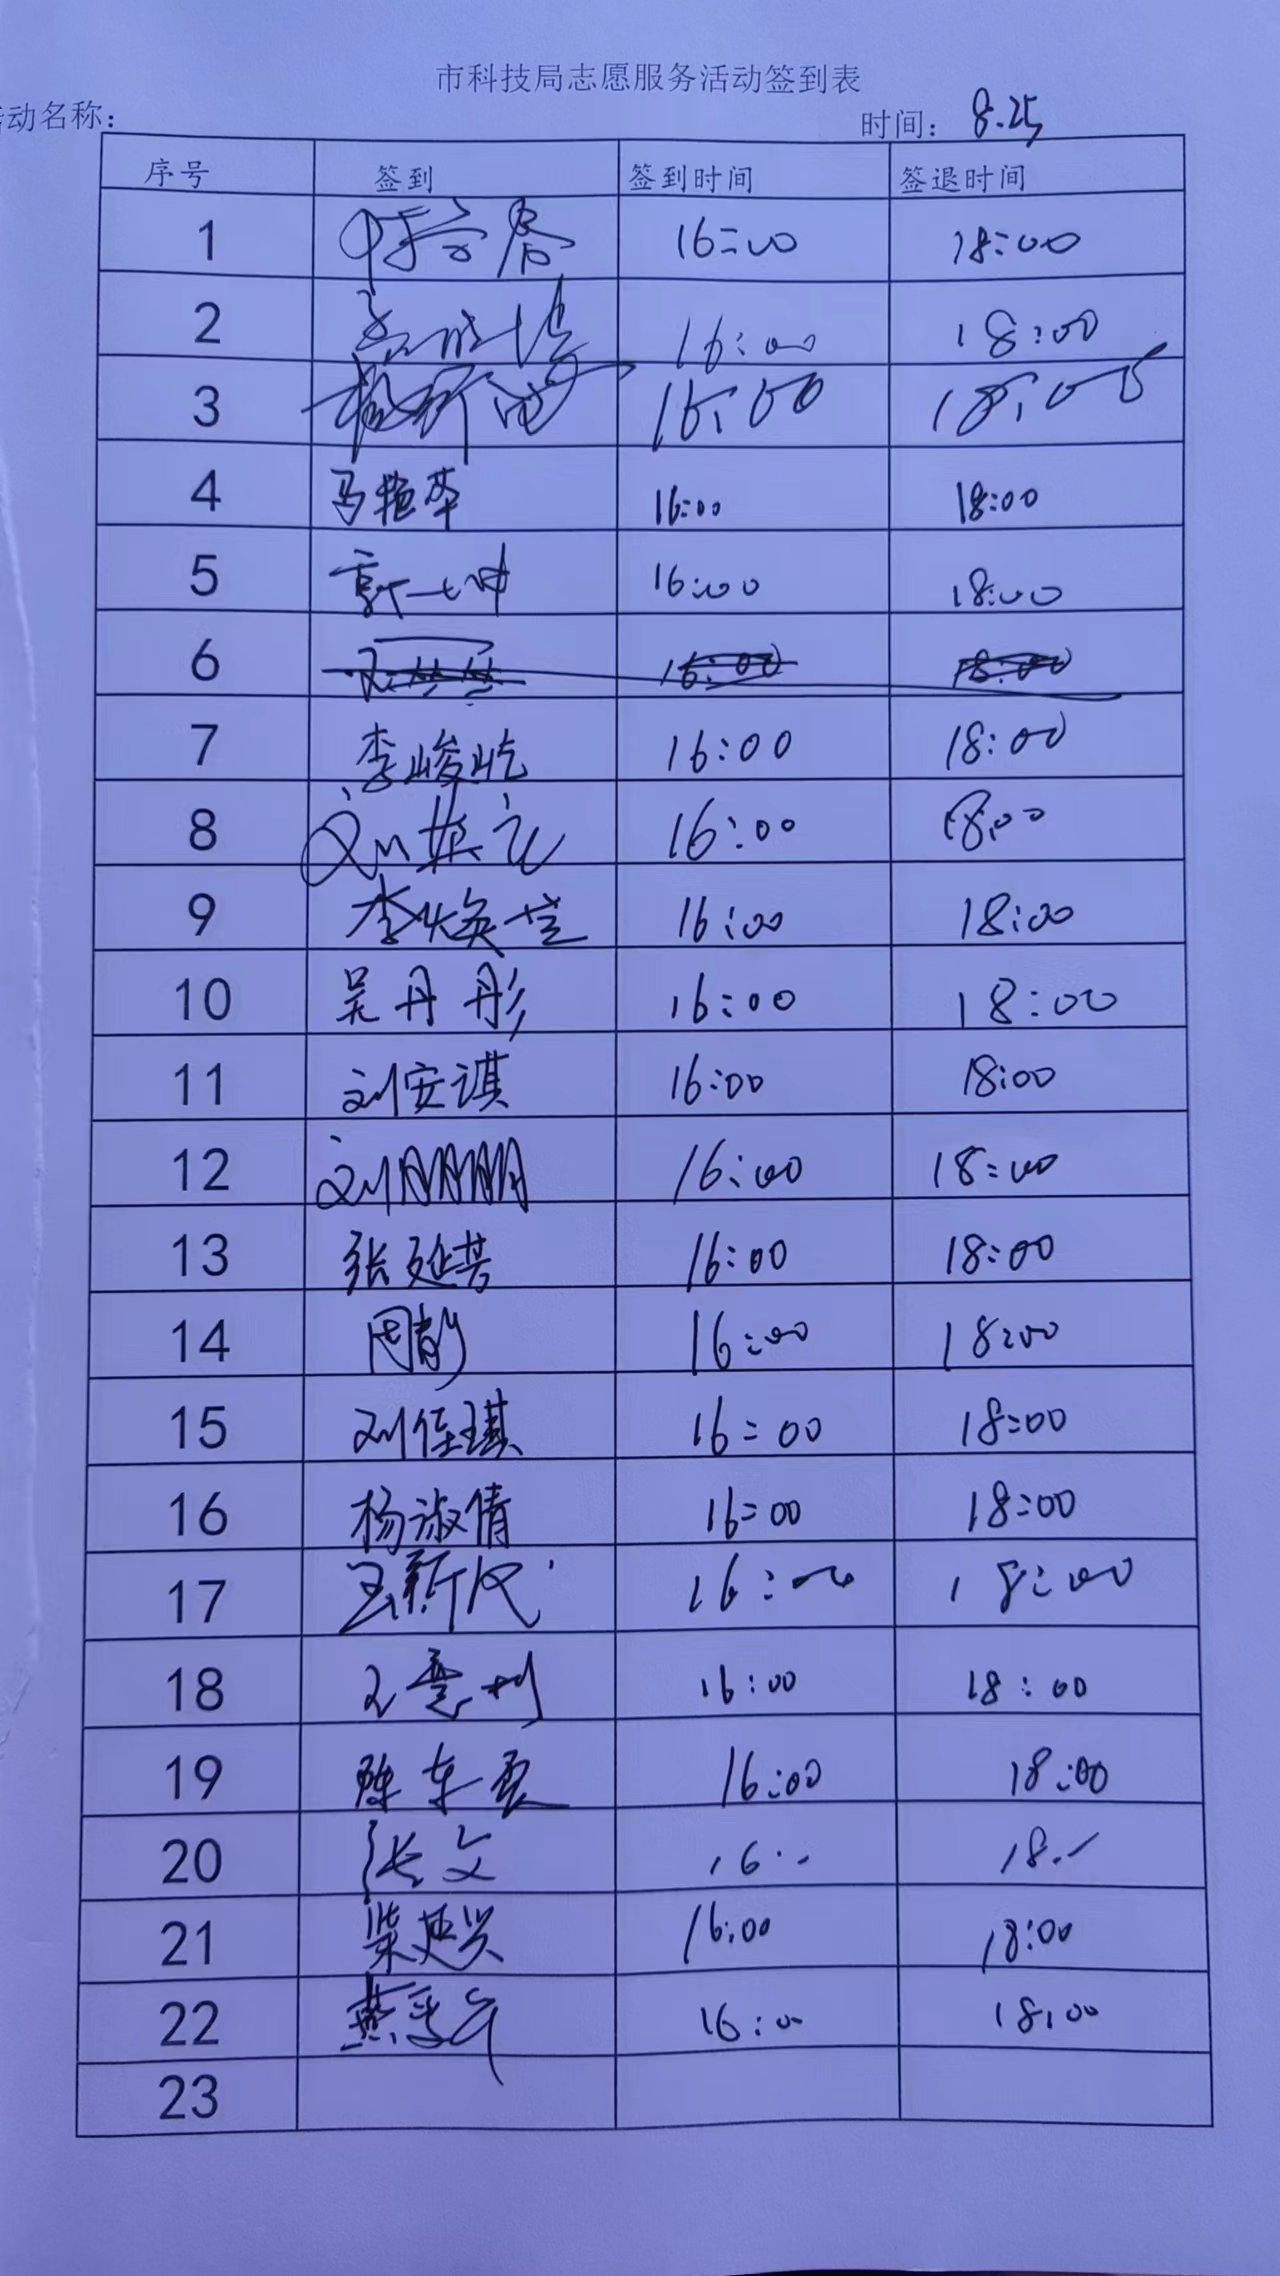 市科技局志愿服务活动签到表
动名称：
时间：8.25
序号 签到 签到时间 签退时间
1 16:00 18:00
2 16:00 18:00
3 16:00 18:00
4 马艳苹 16:00 18:00
5 郭一坤 16:00 18:00
6 16:00 18:00
7 李峻屹 16:00 18:00
8 刘 16:00 18:00
9 李焕 16:00 18:00
10 吴丹彤 16:00 18:00
11 刘安淇 16:00 18:00
12 刘朋朋 16:00 18:00
13 张延芳 16:00 18:00
14 周 16:00 18:00
15 刘佳琪 16:00 18:00
16 杨淑倩 16:00 18:00
17 王新民 16:00 18:00
18 王 16:00 18:00
19 陈东霞 16:00 18:00
20 张文 16 18
21 柴延兴 16:00 18:00
22 燕 16:00 18:00
23